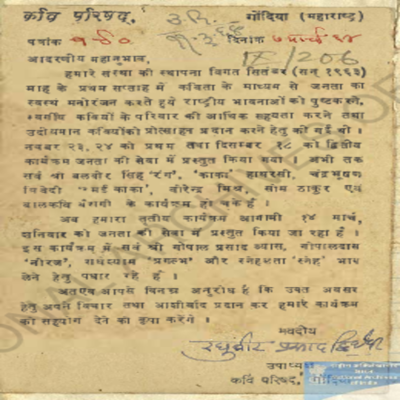 कवि परिषद्, गोंदिया (महाराष्ट्र)
पत्रांक १८० दिनांक ७ मार्च ६४
IX/206
आदरणीय महानुभाव,
हमारे संस्था की स्थापना विगत सितंबर (सन् १९६३)
माह के प्रथम सप्ताह में कविता के माध्यम से जनता का
स्वस्थ मनोरंजन करते हुये राष्ट्रीय भावनाओं की पुष्टकर्ता,
स्वर्गीय कवियों के परिवार की आर्थिक सहायता करने तथा
उदीयमान कवियोंको प्रोत्साहन प्रदान करने हेतु की गई थी ।
नवंबर २३, २४ को प्रथम तथा दिसम्बर १८ को द्वितीय
कार्यक्रम जनता की सेवा में प्रस्तुत किया गया । अभी तक
सर्व श्री बलवीर सिंह 'रंग', 'काका' हाथरसी, चंद्रभूषण
त्रिवेदी 'रमई काका', वीरेन्द्र मिश्र, सोम ठाकुर एवं
बालकवि बैरागी के कार्यक्रम हो चुके हैं ।
अब हमारा तृतीय कार्यक्रम आगामी १४ मार्च,
शनिवार को जनता की सेवा में प्रस्तुत किया जा रहा है ।
इस कार्यक्रम में सर्व श्री गोपाल प्रसाद व्यास, गोपालदास
'नीरज', राधेश्याम 'प्रगल्भ' और स्नेहलता 'स्नेह' भाग
लेने हेतु पधार रहे हैं ।
अतएव आपसे विनम्र अनुरोध है कि उक्त अवसर
हेतु अपने विचार तथा आशीर्वाद प्रदान कर हमारे कार्यक्रम
को सहयोग देने की कृपा करेंगे ।
भवदीय
रघुवीर प्रसाद द्विवेदी
उपाध्यक्ष
कवि परिषद, गोंदिया